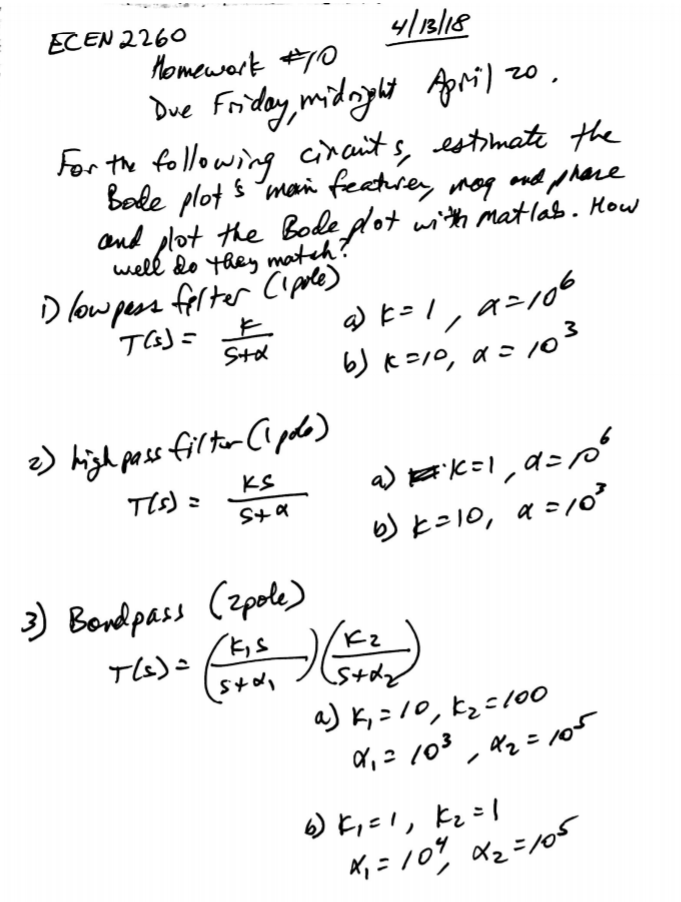 ECEN 2260
4/13/18
Homework #10
Due Friday, midnight April 20.
For the following circuits, estimate the
Bode plot's main features, mag and phase
and plot the Bode plot with matlab. How
well do they match?
1) low pass filter (1 pole)
T(s) = K/(s+α)
a) K=1, α=10^6
b) K=10, α=10^3
2) high pass filter (1 pole)
T(s) = KS/(s+α)
a) K=1, α=10^6
b) K=10, α=10^3
3) Bandpass (2pole)
T(s) = (K₁s/(s+α₁))(K₂/(s+α₂))
a) K₁=10, K₂=100
α₁=10^3, α₂=10^5
b) K₁=1, K₂=1
α₁=10^4, α₂=10^5